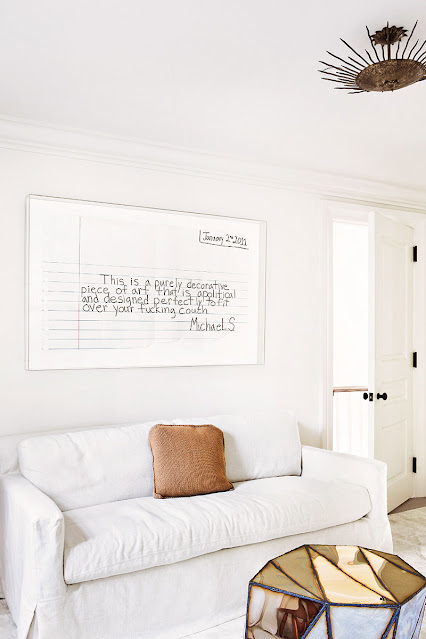 January 2nd 2011
This is a purely decorative
piece of art that is apolitical
and designed perfectly to fit
over your fucking couch
Michael.S